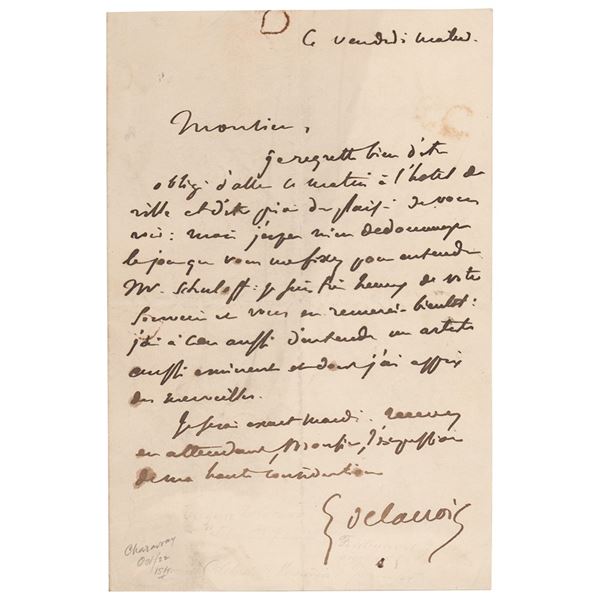 Ce vendredi matin.
Monsieur,
Je regrette bien d'être
obligé d'aller ce matin à l'hotel de
ville et d'être privé du plaisir de vous
voir : mais j'espère m'en dédommager
le jour que vous me fixez pour entendre
Mr. Schuloff : je suis très heureux de votre
souvenir et vous en remercie bientôt :
j'ai à coeur aussi d'entendre un artiste
aussi éminent et dont j'ai appris
des merveilles.
Je serai exact mardi. recevez
en attendant, Monsieur, l'expression
de ma haute considération
E Delacroix
Charavay
Oct/22